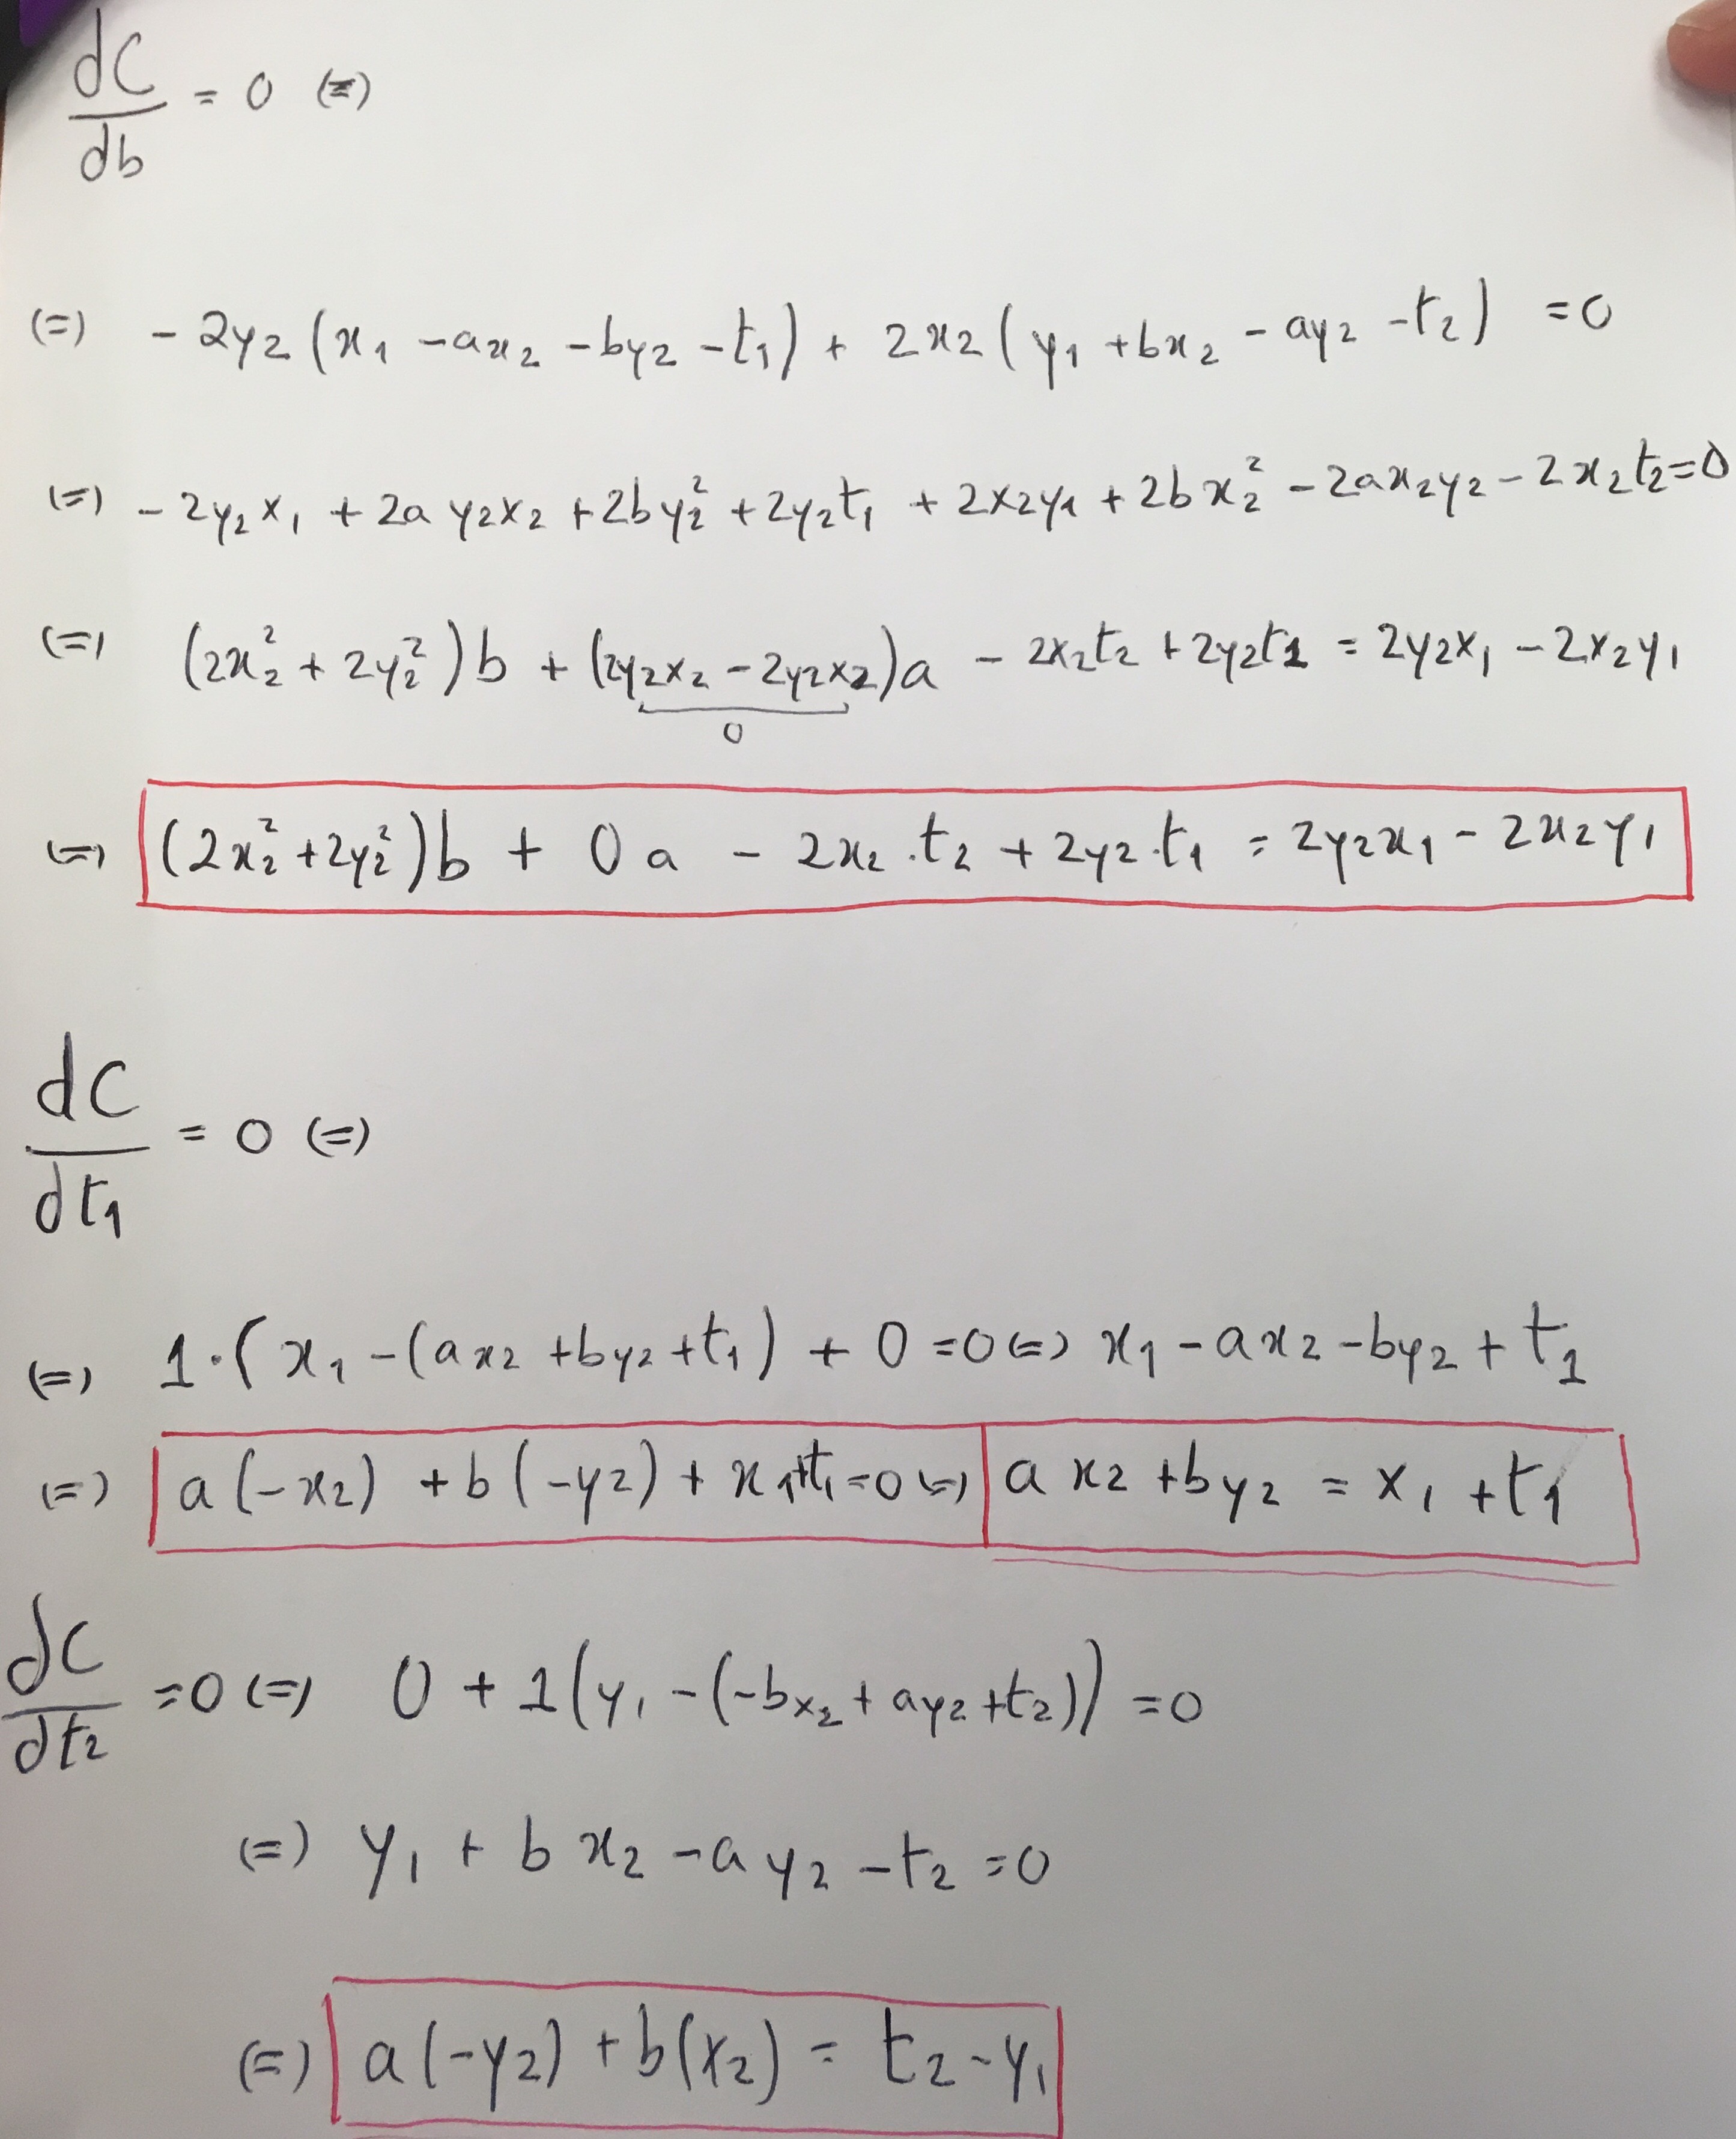 dC/db = 0 (=)
(=) - 2y₂ (x₁ - ax₂ - by₂ - t₁) + 2x₂ (y₁ + bx₂ - ay₂ - t₂) = 0
(=) - 2y₂x₁ + 2a y₂x₂ + 2by₂² + 2y₂t₁ + 2x₂y₁ + 2bx₂² - 2ax₂y₂ - 2x₂t₂ = 0
(=) (2x₂² + 2y₂²)b + (2y₂x₂ - 2y₂x₂)a - 2x₂t₂ + 2y₂t₁ = 2y₂x₁ - 2x₂y₁
0
(=) (2x₂² + 2y₂²)b + 0a - 2x₂.t₂ + 2y₂.t₁ = 2y₂x₁ - 2x₂y₁
dC/dt₁ = 0 (=)
(=) 1.(x₁ - (ax₂ + by₂ + t₁) + 0 = 0 (=) x₁ - ax₂ - by₂ + t₁
(=) a(-x₂) + b(-y₂) + x₁ + t₁ = 0 (=) ax₂ + by₂ = x₁ + t₁
dC/dt₂ = 0 (=) 0 + 1(y₁ - (-bx₂ + ay₂ + t₂)) = 0
(=) y₁ + bx₂ - ay₂ - t₂ = 0
(=) a(-y₂) + b(x₂) = t₂ - y₁